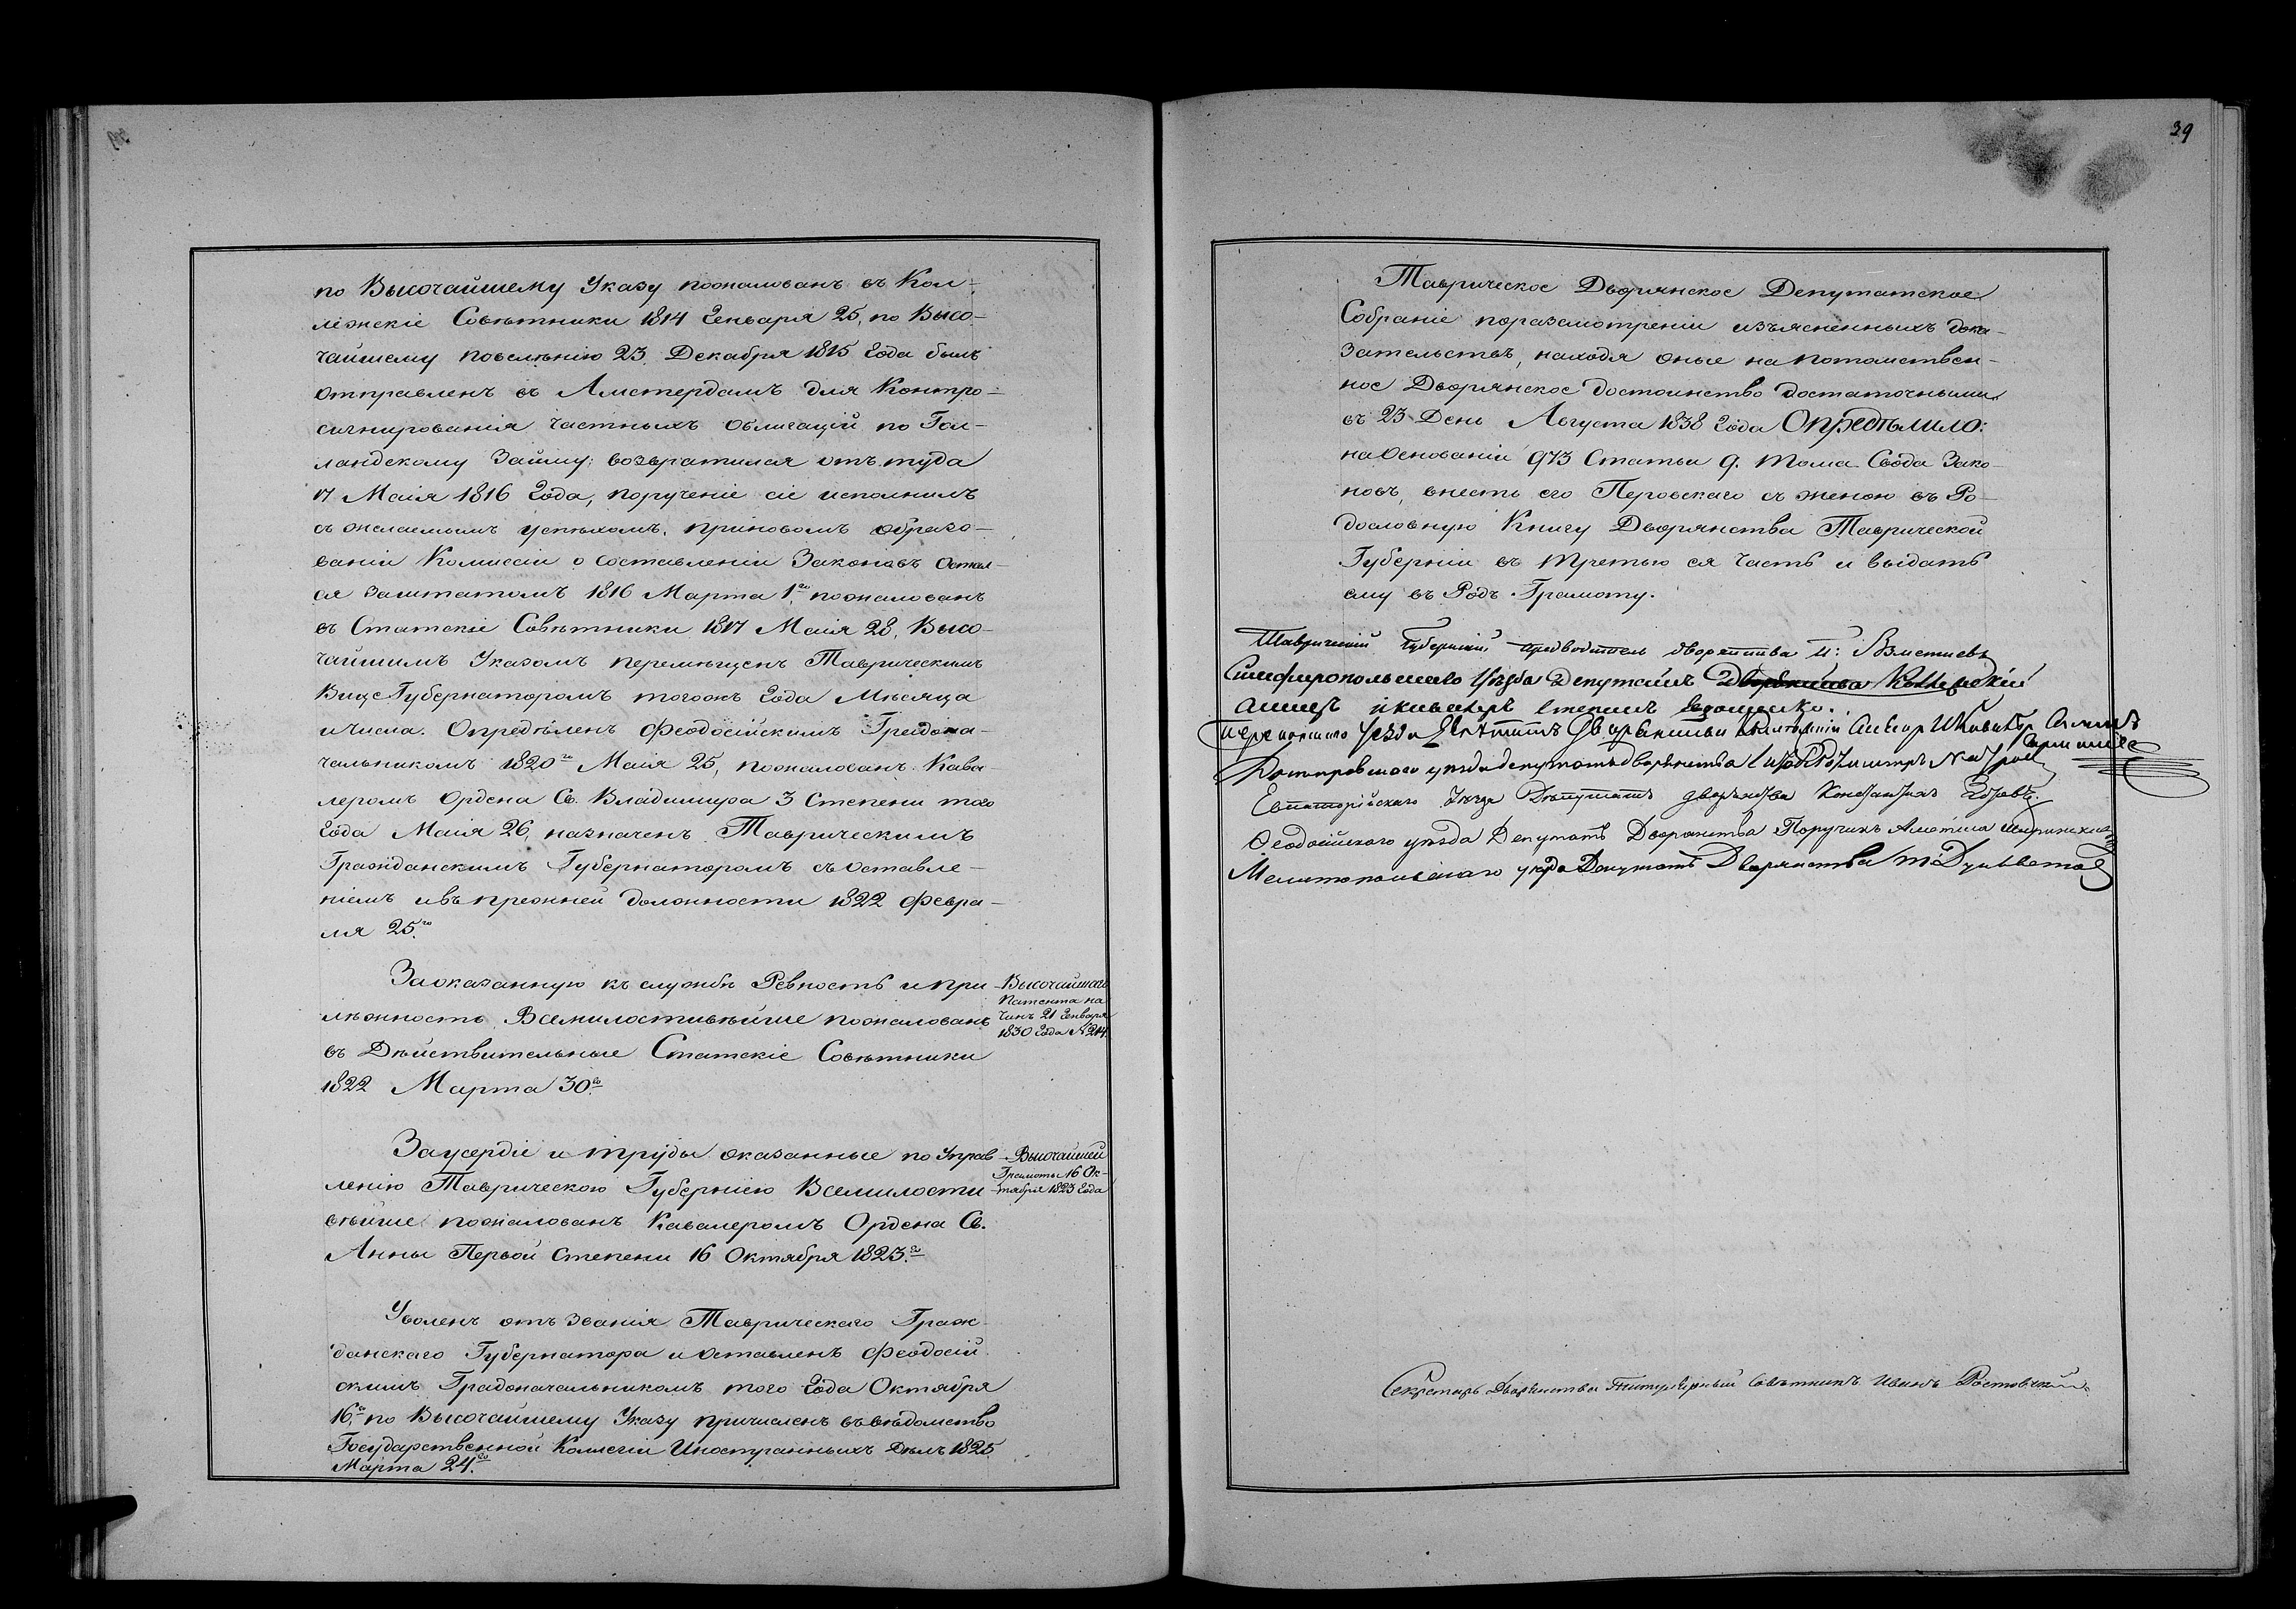 по Высочайшему Указу пожалованъ въ Кол-
лежскіе Совѣтники 1814 Генваря 25, по Высо-
чайшему повелѣнію 23 Декабря 1815 Года былъ
отправленъ въ Амстердамъ для Контро-
сигнированія Частныхъ Облигацій по Гол-
ландскому Займу; возвратился отъ туда
17 Маія 1816 Года, порученіе сіе исполнилъ
съ желаемымъ успѣхомъ, приновомъ образо-
ваніи Комисіи о Составленіи Законовъ Остал-
ся Заштатомъ 1816 Марта 1го, пожалованъ
въ Статскіе Совѣтники 1817 Маія 28, Высо-
чайшимъ Указомъ перемѣщенъ Таврическимъ
Вице Губернаторомъ тогожъ Года Мѣсяца
и Числа. Опредѣленъ Феодосійскимъ Градона-
чальникомъ 1820го Маія 25, пожалованъ Кава
леромъ Ордена Св. Владимира 3 Степени того
Года Маія 26, назначенъ Таврическимъ
Гражданскимъ Губернаторомъ съ Оставле-
ніемъ ивъ прежней должности 1822 Февра-
ля 25го.
Заоказанную къ службѣ Ревность и при
лѣжность Всемилостивѣйше пожалованъ
въ Дѣйствительные Статскіе Совѣтники
1822 Марта 30го.
Высочайшаго
Патента на
Чинъ 21 Генваря
1830 Года № 214.
Заусердіе и труды оказанные по Управ
ленію Таврическою Губерніею Всемилости
вѣйше пожалованъ Кавалеромъ Ордена Св.
Анны Первой Степени 16 Октября 1823.го
Высочайшей
Грамоты 16 Ок-
тября 1823 Года
Уволенъ отъ Званія Таврическаго Граж-
данскаго Губернатора и Оставленъ Феодосій
скимъ Градоначальникомъ того Года Октября
16го, по Высочайшему Указу причисленъ въ вѣдомство
Государственной Колегіи Иностранныхъ Дѣлъ 1825
Марта 24.го
39
Таврическое Дворянское Депутатское
Собраніе поразсмотреніи изъясненныхъ дока-
зательствъ, находя оные на потомствен-
ное Дворянское достоинство достаточными
въ 23 День Августа 1838 Года Опредѣлило:
на Основаніи 973 Статьи 9. Тома Свода Зако-
новъ, внесть его Перовскаго съ женою въ Ро-
дословную Книгу Дворянства Таврической
Губерніи въ третью ея Часть и выдать
ему въ Родъ Грамоту.
Таврическій Губернскій предводитель дворянства
Симферопольскаго Уѣзда Депутатъ
уѣзда Дворянства
уѣзда депутатъ дворянства
Евпаторійскаго Уѣзда Депутатъ дворянства Константинъ
Феодосійскаго уѣзда Депутатъ Дворянства Поручикъ
Мелитопольскаго уѣзда Депутатъ Дворянства
Секретарь Дворянства Титулярный Совѣтникъ Иванъ